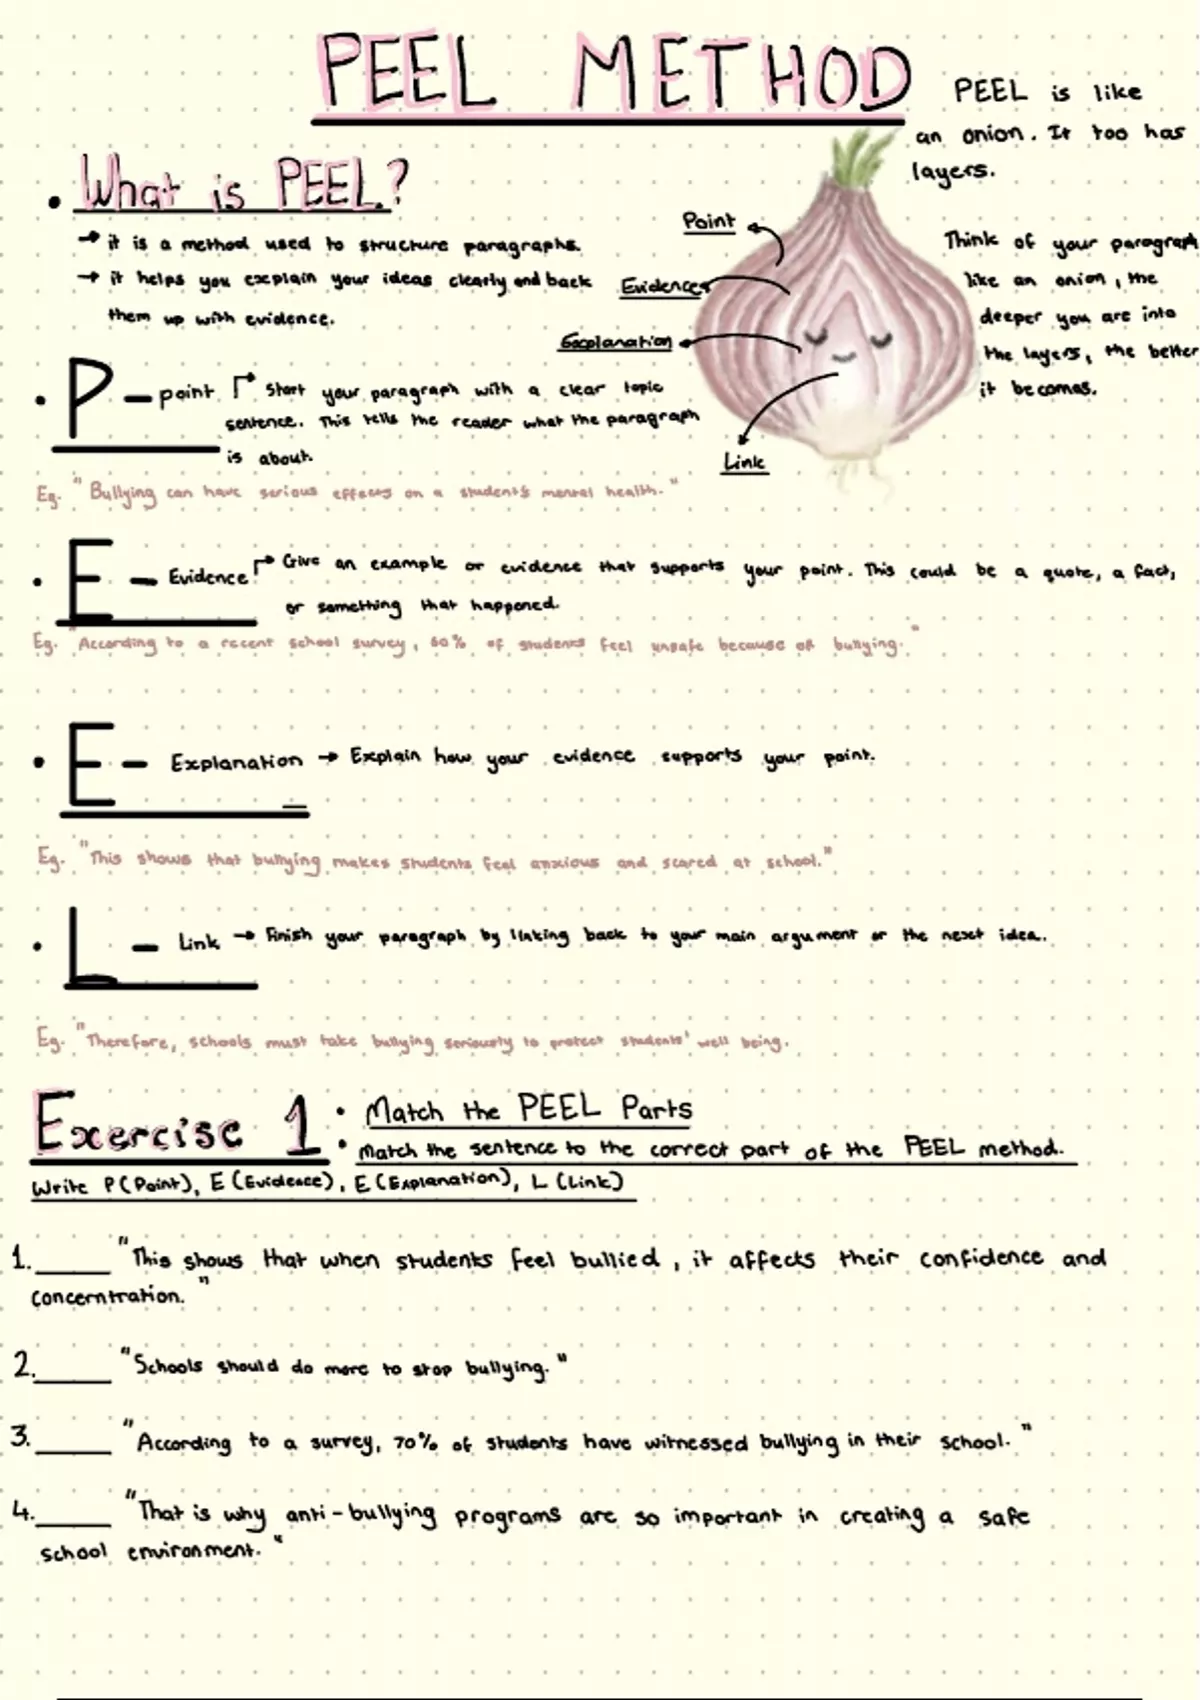 PEEL METHOD
PEEL is like
an onion. It too has
layers.
• What is PEEL?
→ it is a method used to structure paragraphs.
→ it helps you explain your ideas clearly and back
them up with evidence.
Point
Evidence
Explanation
Link
Think of your paragraph
like an onion, the
deeper you are into
the layers, the better
it becomes.
• P - point → Start your paragraph with a clear topic
sentence. This tells the reader what the paragraph
is about.
Eg. "Bullying can have serious effects on a student's mental health."
• E - Evidence → Give an example or evidence that supports your point. This could be a quote, a fact,
or something that happened.
Eg. "According to a recent school survey, 60% of students feel unsafe because of bullying."
• E - Explanation → Explain how your evidence supports your point.
Eg. "This shows that bullying makes students feel anxious and scared at school."
• L - Link → Finish your paragraph by linking back to your main argument or the next idea.
Eg. "Therefore, schools must take bullying seriously to protect students' well being.
Exercise 1 • Match the PEEL Parts
• Match the sentence to the correct part of the PEEL method.
Write P (Point), E (Evidence), E (Explanation), L (Link)
1. ____ "This shows that when students feel bullied, it affects their confidence and
concerntration."
2. ____ "Schools should do more to stop bullying."
3. ____ "According to a survey, 70% of students have witnessed bullying in their school."
4. ____ "That is why anti-bullying programs are so important in creating a safe
school environment."